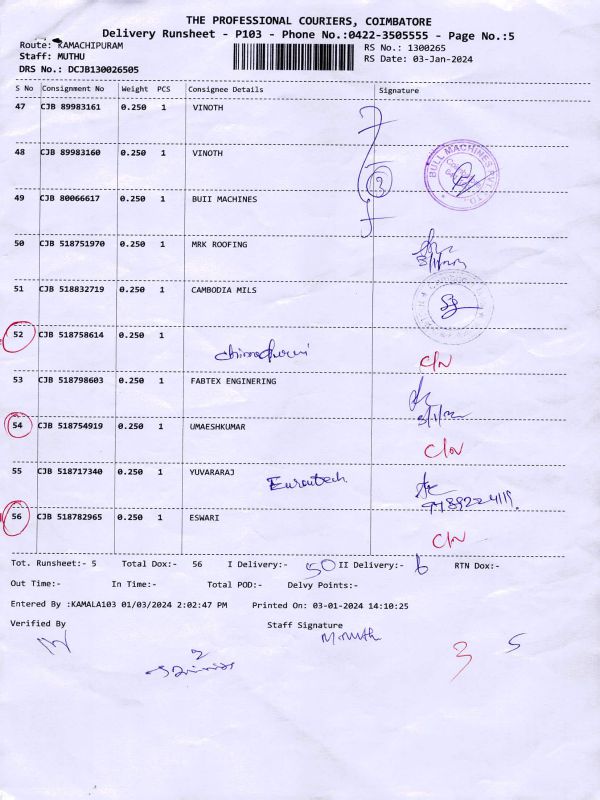 THE PROFESSIONAL COURIERS, COIMBATORE
Delivery Runsheet - P103 - Phone No.:0422-3505555 - Page No.:5
Route: KAMACHIPURAM RS No.: 1300265
Staff: MUTHU RS Date: 03-Jan-2024
DRS No.: DCJB130026505
S No Consignment No Weight PCS Consignee Details Signature
47 CJB 89983161 0.250 1 VINOTH
48 CJB 89983160 0.250 1 VINOTH
BULL MACHINES PVT. LTD.
3
49 CJB 80066617 0.250 1 BUII MACHINES
50 CJB 518751970 0.250 1 MRK ROOFING
51 CJB 518832719 0.250 1 CAMBODIA MILS
52 CJB 518758614 0.250 1
C/N
53 CJB 518798603 0.250 1 FABTEX ENGINERING
54 CJB 518754919 0.250 1 UMAESHKUMAR
C/N
55 CJB 518717340 0.250 1 YUVARARAJ
56 CJB 518782965 0.250 1 ESWARI
C/N
Tot. Runsheet:- 5 Total Dox:- 56 I Delivery:- 50 II Delivery:- 6 RTN Dox:-
Out Time:- In Time:- Total POD:- Delvy Points:-
Entered By :KAMALA103 01/03/2024 2:02:47 PM Printed On: 03-01-2024 14:10:25
Verified By Staff Signature
M.Muth
3 5